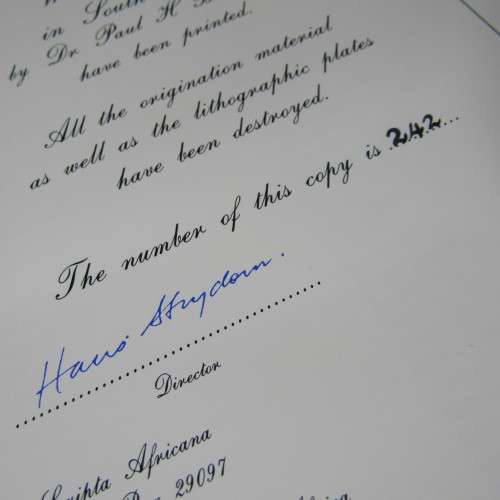 in South
by Dr Paul H
have been printed.
All the origination material
as well as the lithographic plates
have been destroyed.
The number of this copy is 242
Hans Strydom.
Director
Scripta Africana
29097